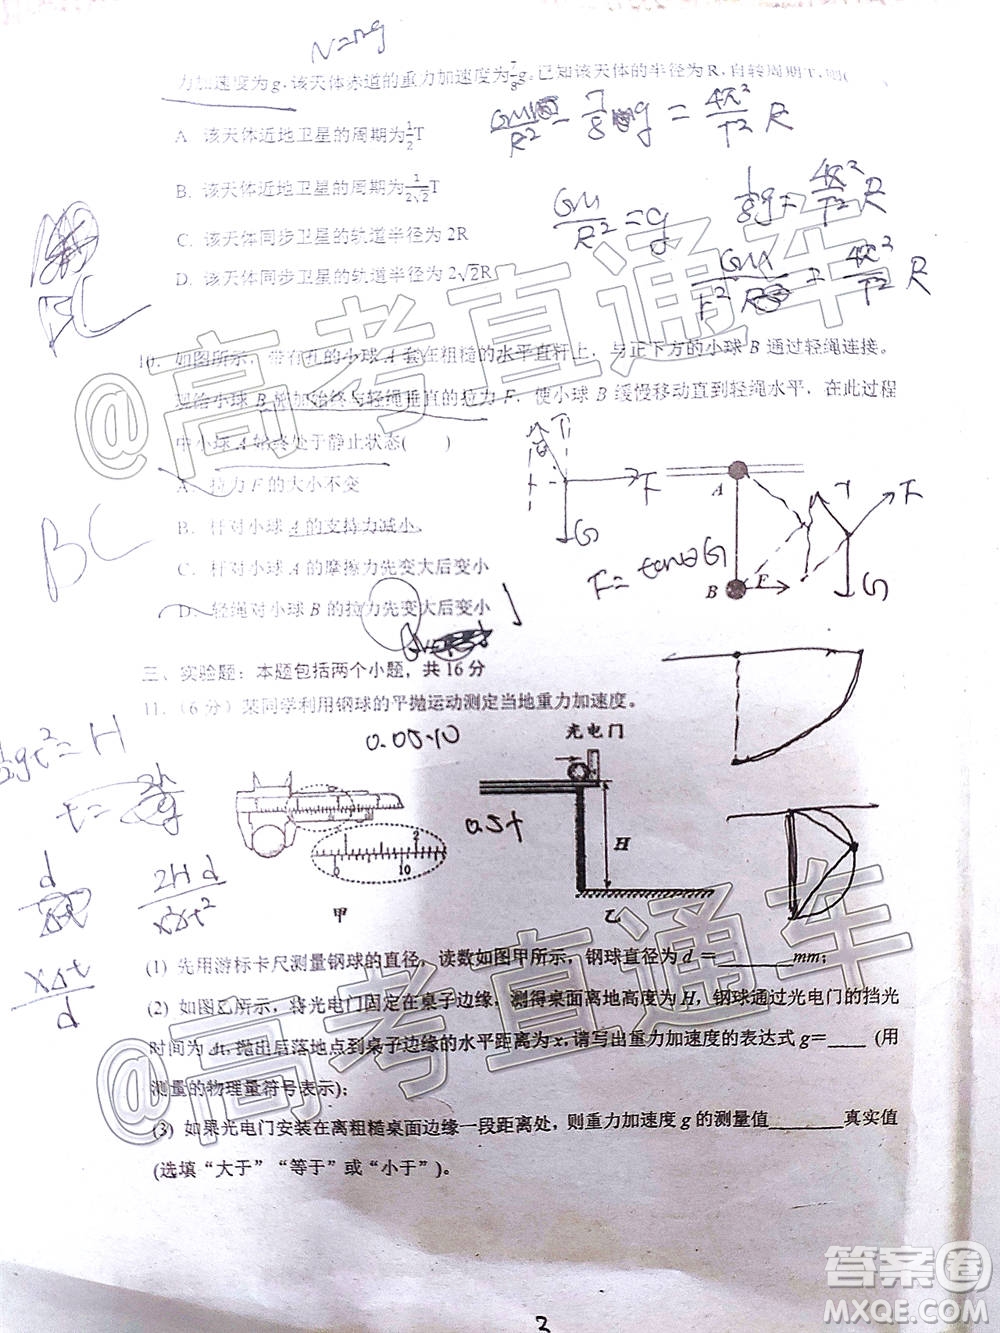 N=mg
力加速度为g,该天体赤道的重力加速度为7/8g。已知该天体的半径为R,自转周期T,则(
A. 该天体近地卫星的周期为1/2T
B. 该天体近地卫星的周期为1/(2√2)T
C. 该天体同步卫星的轨道半径为 2R
D. 该天体同步卫星的轨道半径为 2√2R
GM/R² = g
1/8g = 4π²/T² R
BC
10. 如图所示,带有孔的小球 A 套在粗糙的水平直杆上,与正下方的小球 B 通过轻绳连接。
现给小球 B 施加始终与轻绳垂直的拉力 F,使小球 B 缓慢移动直到轻绳水平,在此过程
中小球 A 始终处于静止状态( )
A. 拉力 F 的大小不变
B. 杆对小球 A 的支持力减小
C. 杆对小球 A 的摩擦力先变大后变小
D. 轻绳对小球 B 的拉力先变大后变小
BC
T
F
G
A
B
F
F=tanθG
T
F
G
三、实验题:本题包括两个小题,共 16 分
11.(6 分)某同学利用钢球的平抛运动测定当地重力加速度。
0 1 2
0 10
甲
光电门
H
乙
0.05×10
0.5+
½gt²=H
2Hd/x²Δt²
xΔt/d
(1) 先用游标卡尺测量钢球的直径,读数如图甲所示,钢球直径为 d = ________mm;
(2) 如图乙所示,将光电门固定在桌子边缘,测得桌面离地高度为 H,钢球通过光电门的挡光
时间为 Δt,抛出后落地点到桌子边缘的水平距离为 x,请写出重力加速度的表达式 g=____ (用
测量的物理量符号表示);
(3) 如果光电门安装在离粗糙桌面边缘一段距离处,则重力加速度 g 的测量值________真实值
(选填“大于”“等于”或“小于”)。
@高考直通车
@高考直通车
答案圈
MXQE.COM
3